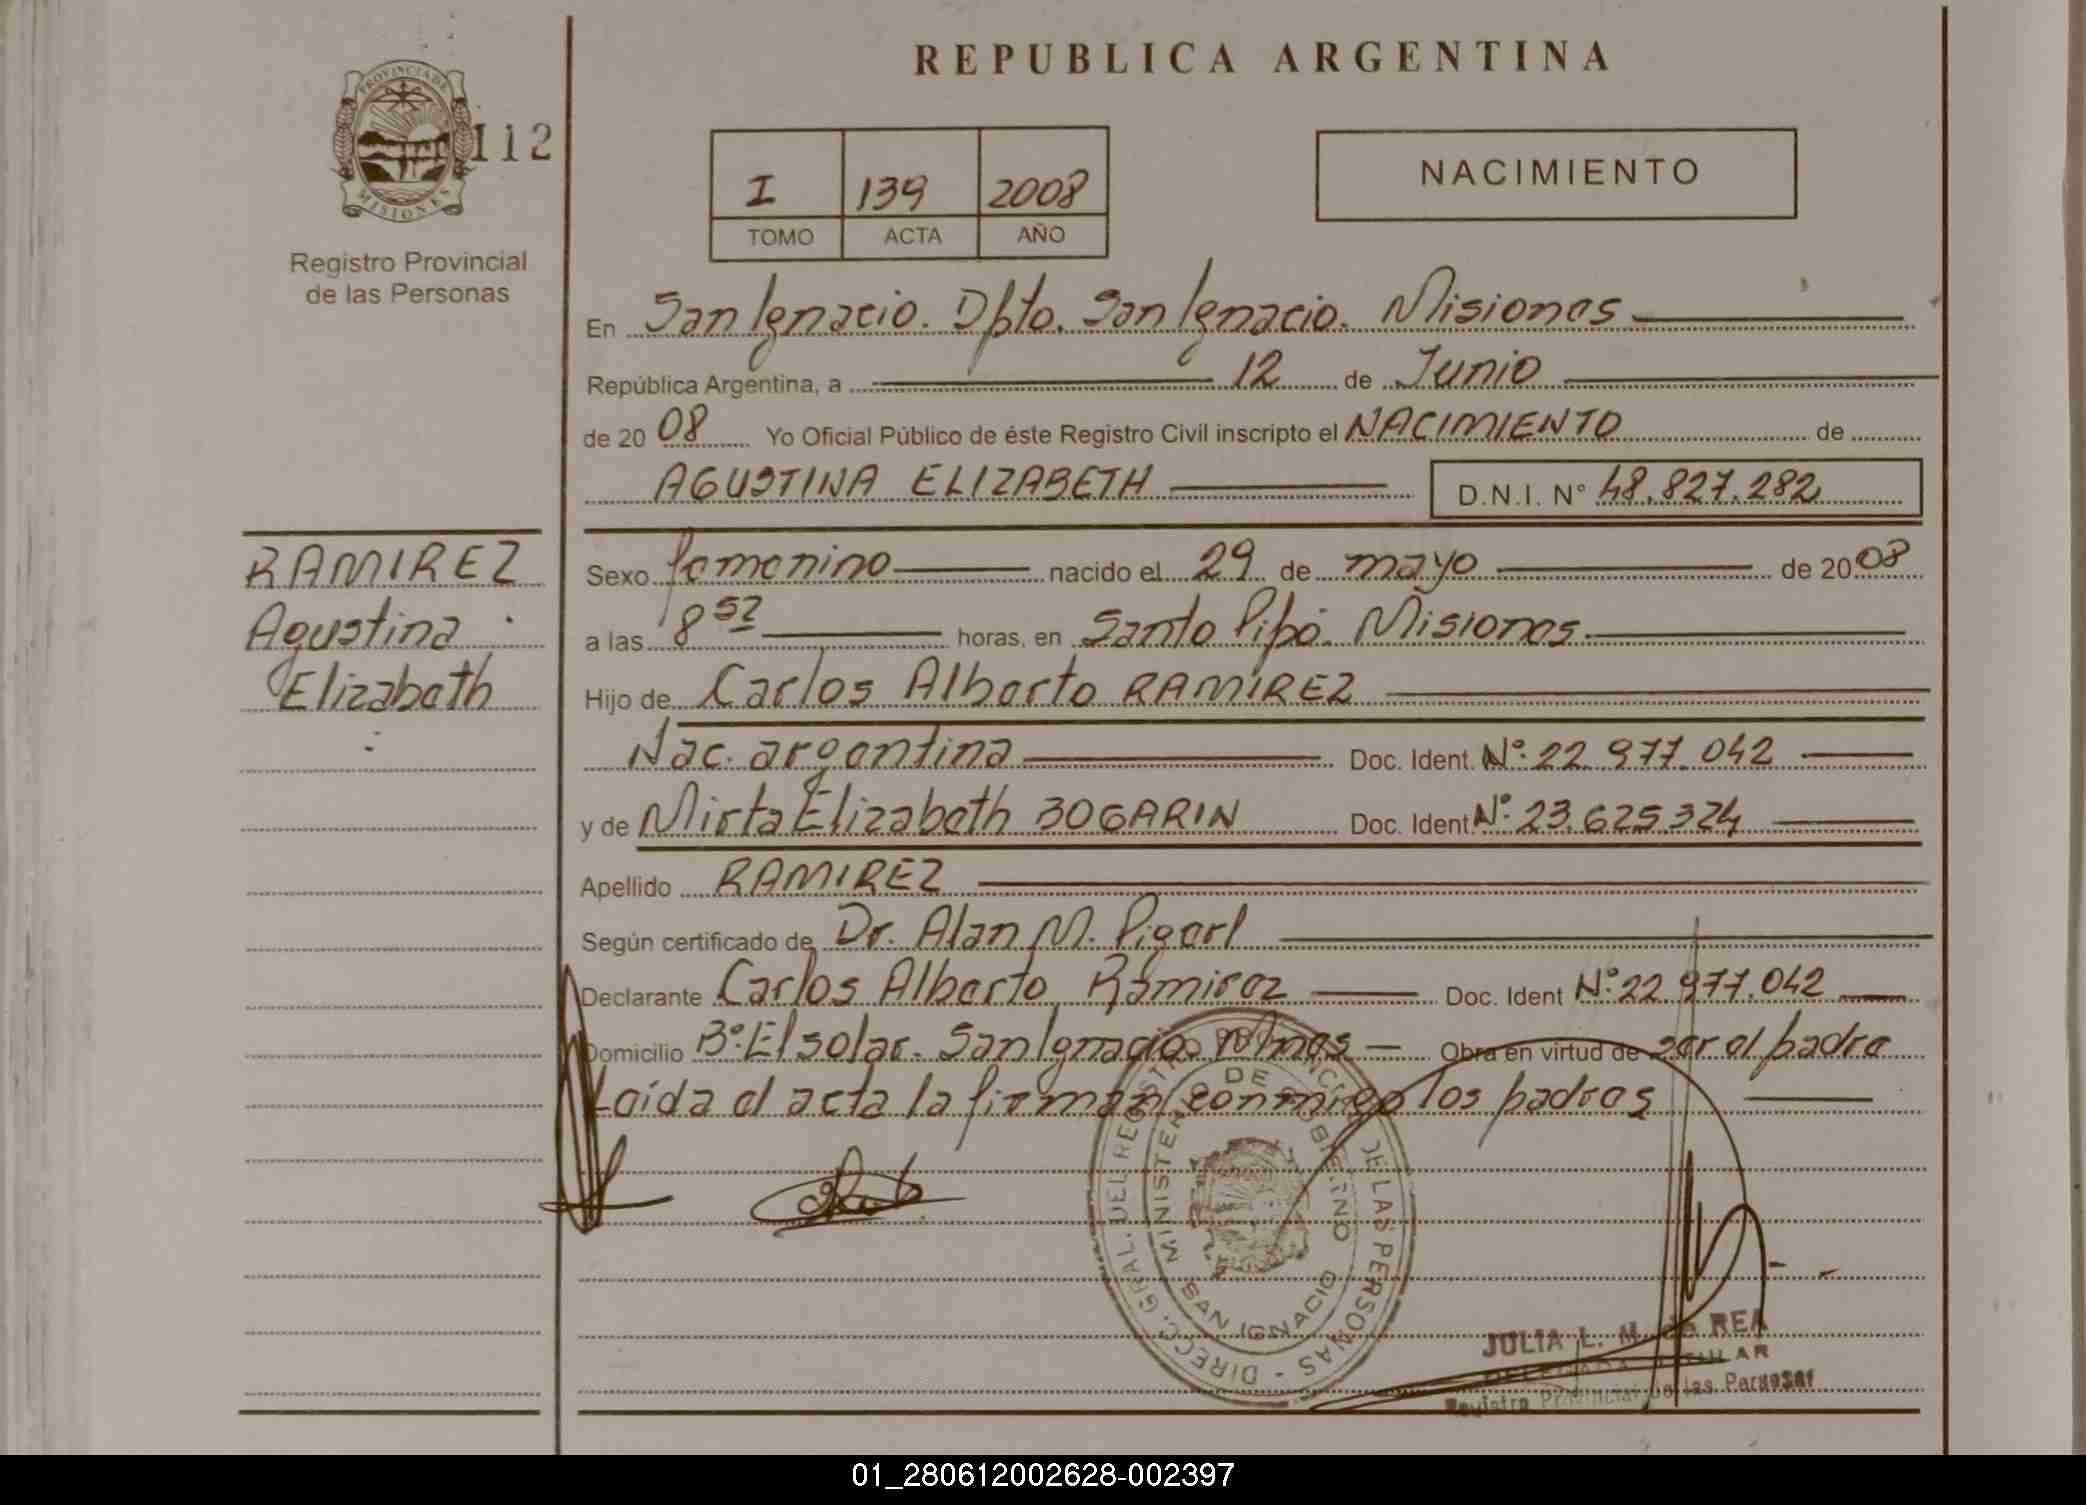 REPUBLICA ARGENTINA
PROVINCIA DE MISIONES
112
Registro Provincial
de las Personas
I 139 2008
TOMO ACTA AÑO
NACIMIENTO
En San Ignacio. Dpto. San Ignacio. Misiones
República Argentina, a 12 de Junio
de 2008 Yo Oficial Público de éste Registro Civil inscripto el NACIMIENTO de
AGUSTINA ELIZABETH D.N.I. N° 48.827.282
RAMIREZ
Agustina
Elizabeth
Sexo femenino nacido el 29 de mayo de 2008
a las 8 52 horas, en Santo Pipó. Misiones
Hijo de Carlos Alberto RAMIREZ
Nac. argentina Doc. Ident. N°: 22.977.042
y de Mirta Elizabeth BOGARIN Doc. Ident N°: 23.625.324
Apellido RAMIREZ
Según certificado de Dr. Alan M. Pigerl
Declarante Carlos Alberto Ramirez Doc. Ident N°: 22.977.042
Domicilio B°: El solar. San Ignacio. Mnes Obra en virtud de ser el padre
Leida el acta la firman conmigo los padres
DIREC. GRAL. DEL REGISTRO PROVINCIAL DE LAS PERSONAS
MINISTERIO DE GOBIERNO
SAN IGNACIO
JULIA L. M. de REA
DELEGADA TITULAR
Registro Provincial de las Personas
01_280612002628-002397